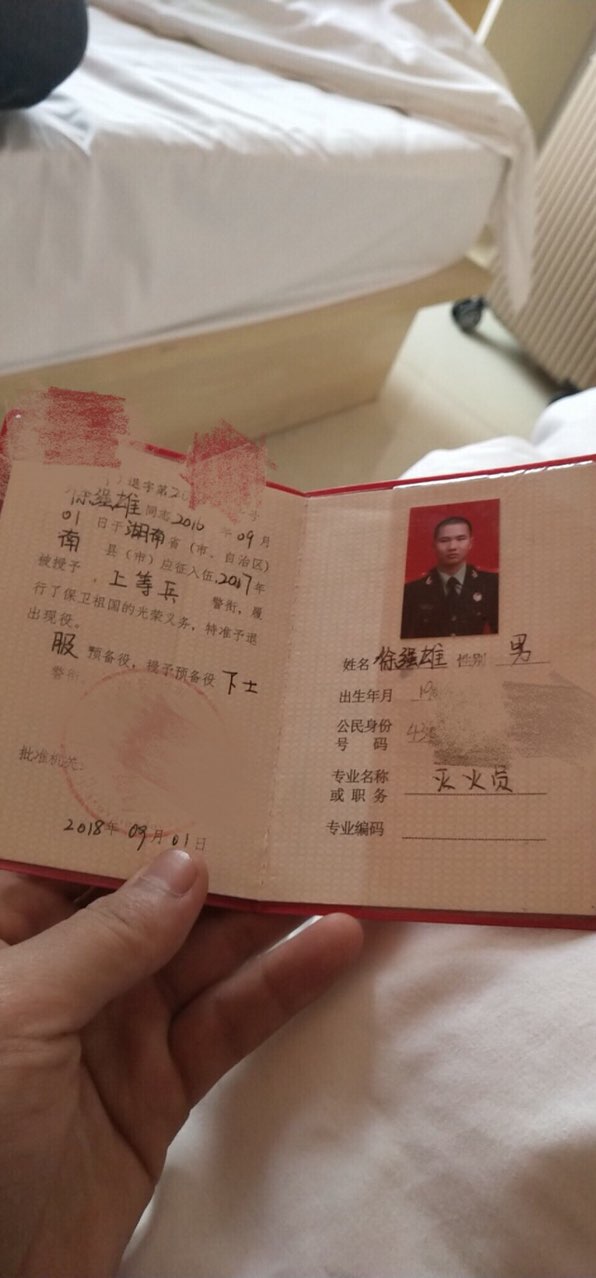 退字第2 号
徐强雄同志2016年09月
01日于湖南省（市、自治区）
南县（市）应征入伍，2017年
被授予上等兵警衔，履
行了保卫祖国的光荣义务，特准予退
出现役。
服预备役，授予预备役下士
警衔
批准机关：
2018年09月01日
姓名徐强雄性别男
出生年月19
公民身份
号码43
专业名称
或职务灭火员
专业编码